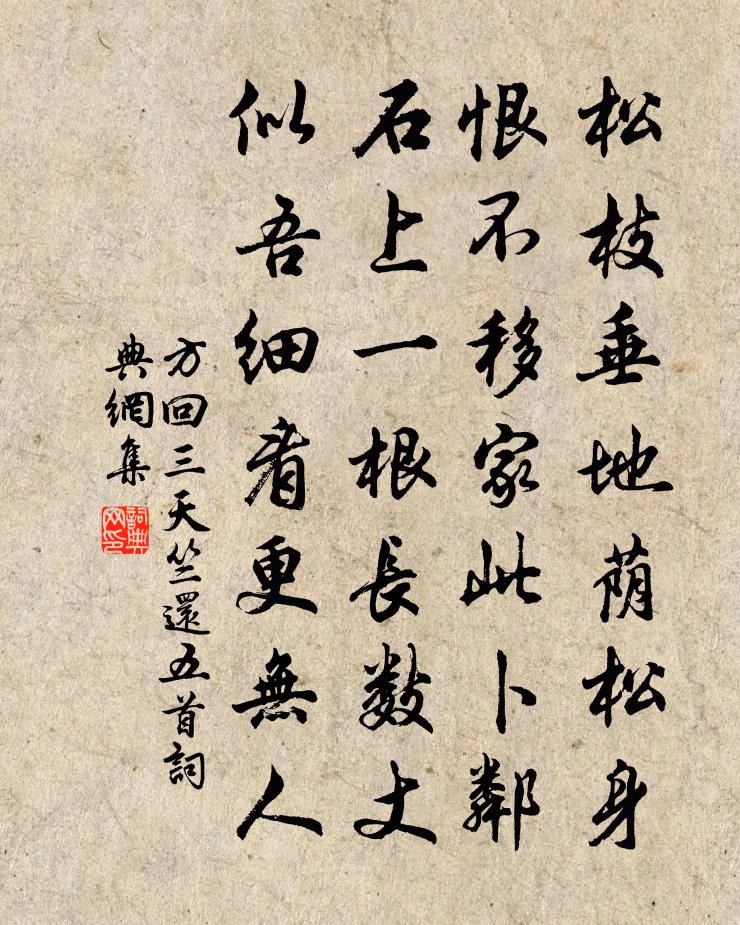 松枝垂地蔭松身
恨不移家此卜鄰
石上一根長數丈
似吾細看更無人
方回三天竺還五首詞
典網集
詞典
网印